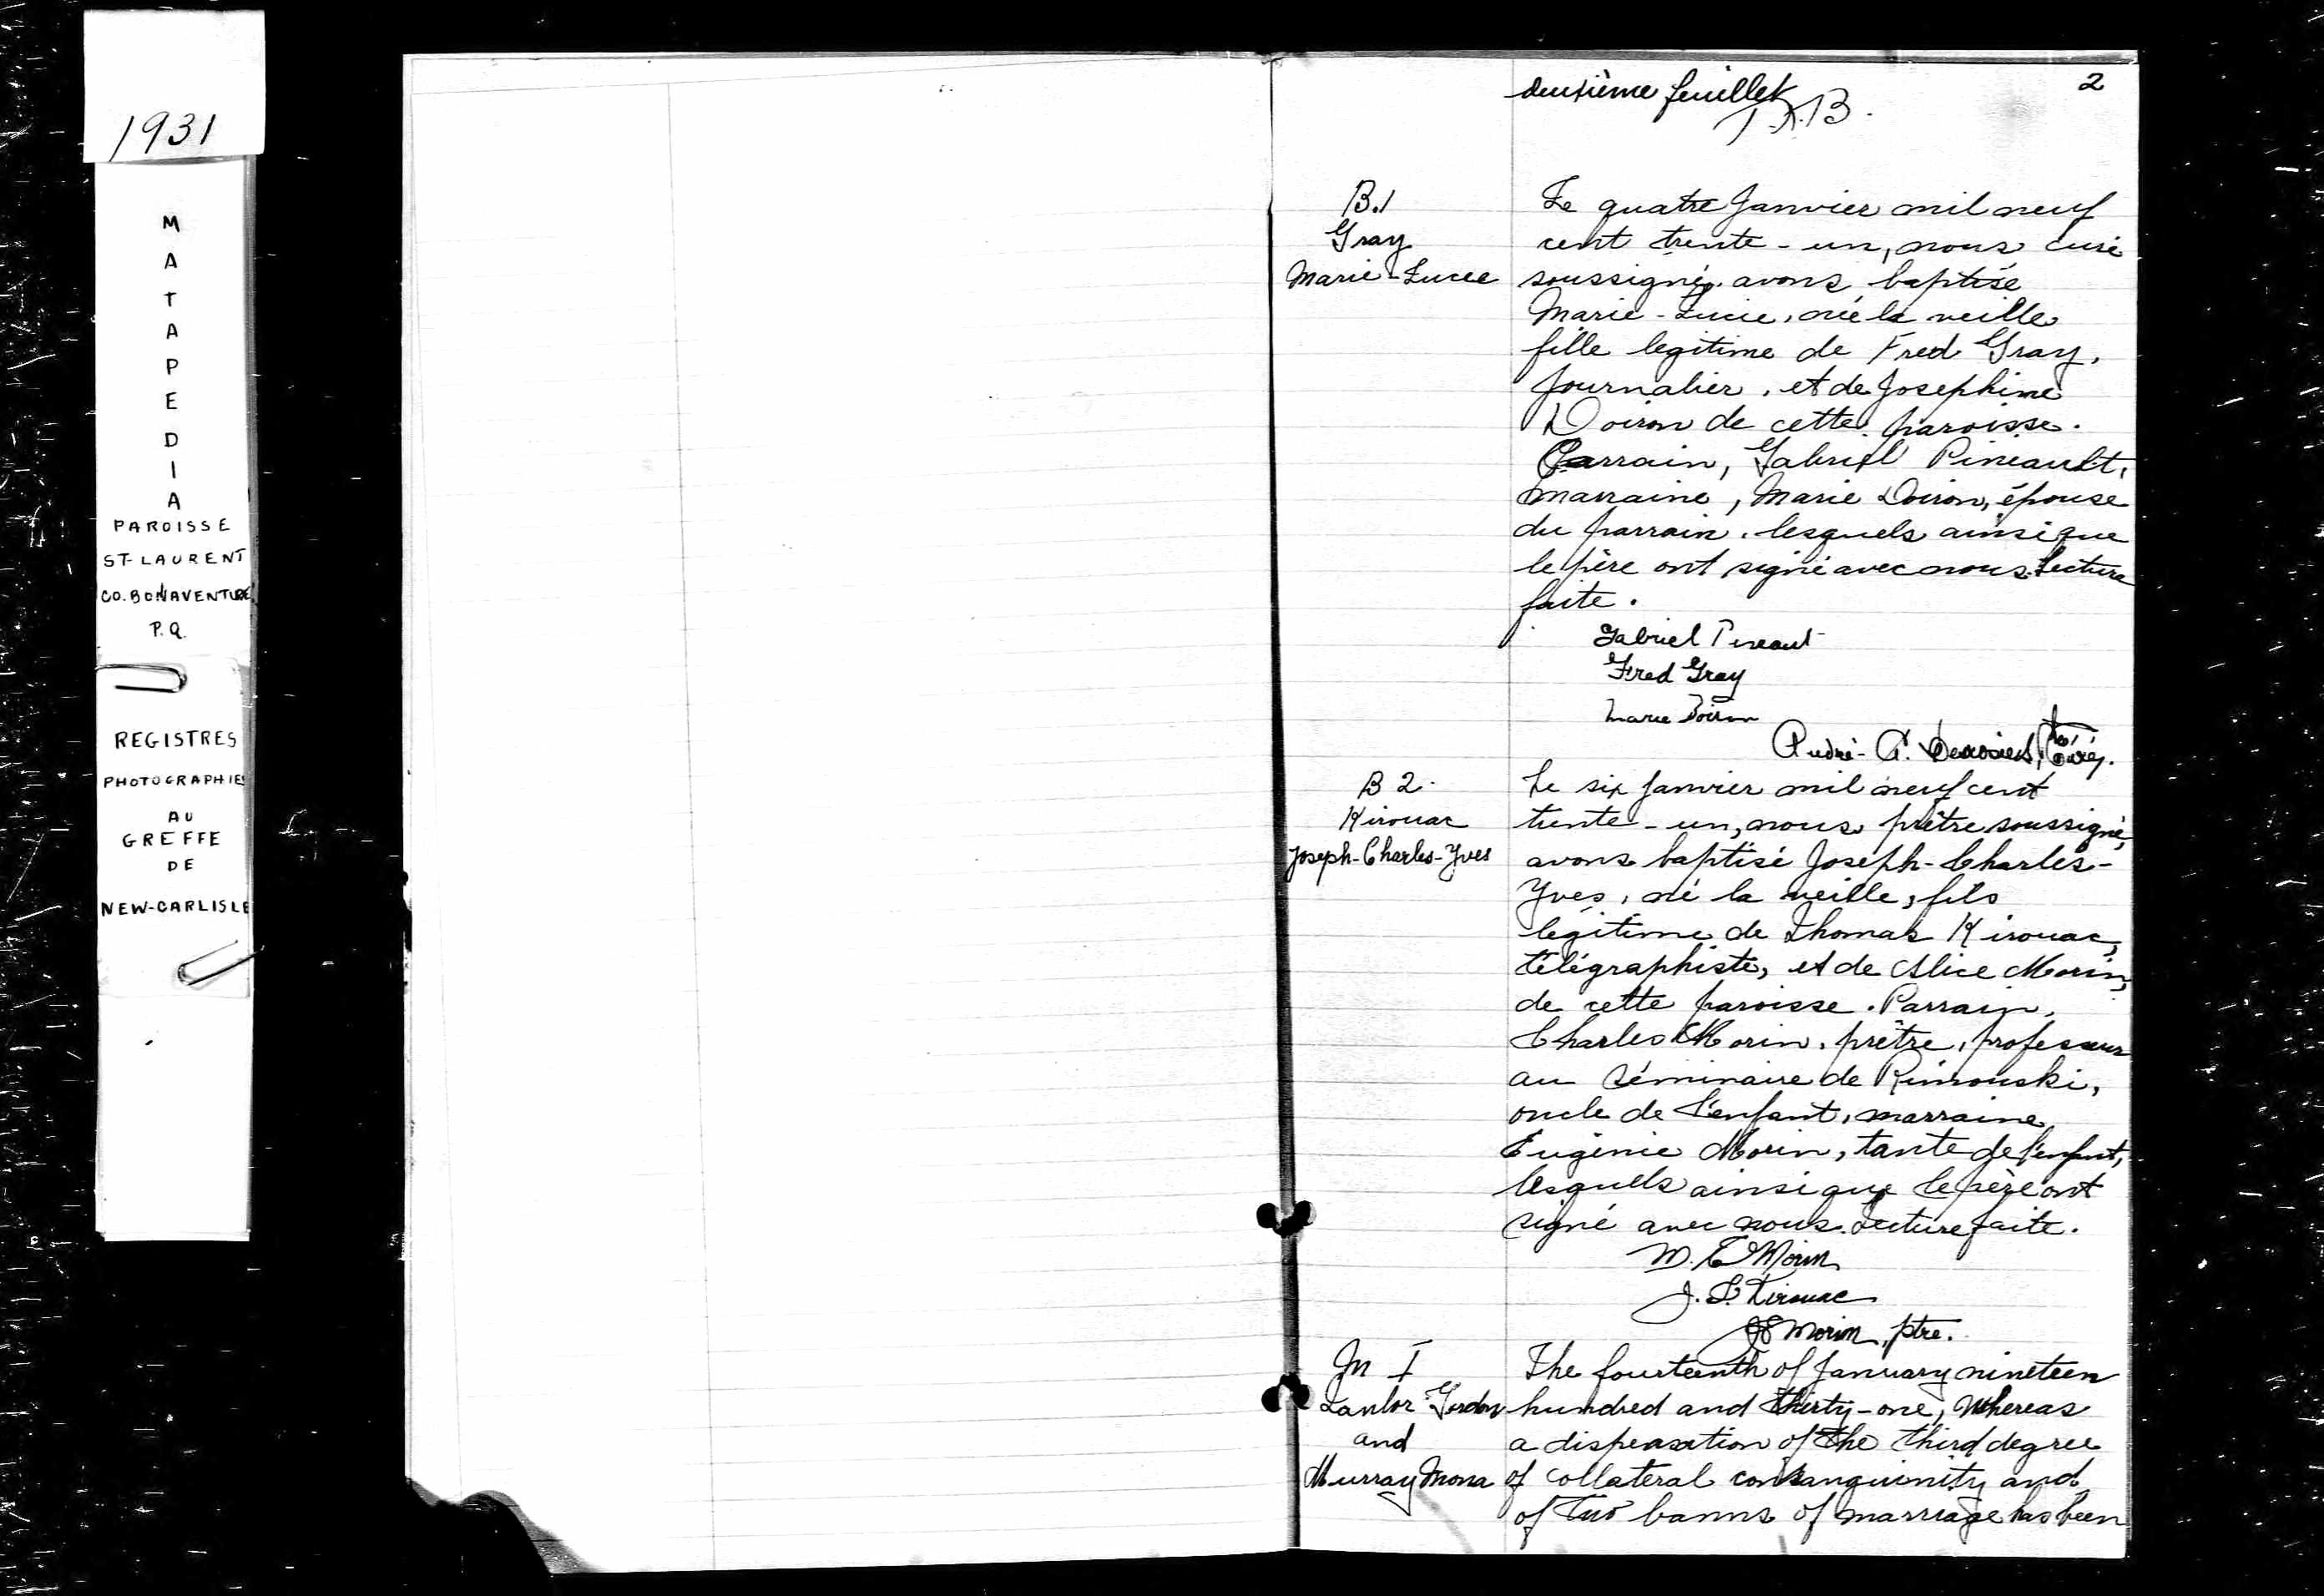 1931
M
A
T
A
P
E
D
I
A
PAROISSE
ST-LAURENT
CO. BONAVENTURE
P.Q.
REGISTRES
PHOTOGRAPHIES
AU
GREFFE
DE
NEW-CARLISLE
deuxième feuillet
2
B.1
Gray
Marie-Lucie
Le quatre Janvier mil neuf
cent trente-un, nous curé
soussigné, avons baptisé
Marie-Lucie, née la veille
fille legitime de Fred Gray,
journalier, et de Josephine
Doiron de cette paroisse.
Parrain, Gabriel Pineault,
marraine, Marie Doiron, épouse
du parrain, lesquels ainsi que
le père ont signé avec nous. Lecture
faite.
Gabriel Pineault
Fred Gray
Marie Doiron
André-A. Curé.
B 2.
Kirouac
Joseph-Charles-Yves
Le six Janvier mil neuf cent
trente-un, nous prêtre soussigné,
avons baptisé Joseph-Charles-
Yves, né la veille, fils
légitime de Thomas Kirouac,
télégraphiste, et de Alice Morin,
de cette paroisse. Parrain,
Charles Morin, prêtre, professeur
au Séminaire de Rimouski,
oncle de l'enfant, marraine
Eugénie Morin, tante de l'enfant,
lesquels ainsi que le père ont
signé avec nous. Lecture faite.
M. E Morin
J. T. Kirouac
Morin, ptre.
M I
Lawlor Gordon
and
Murray Mona
The fourteenth of January nineteen
hundred and thirty-one, Whereas
a dispensation of the third degree
of collateral consanguinity and
of two banns of marriage has been